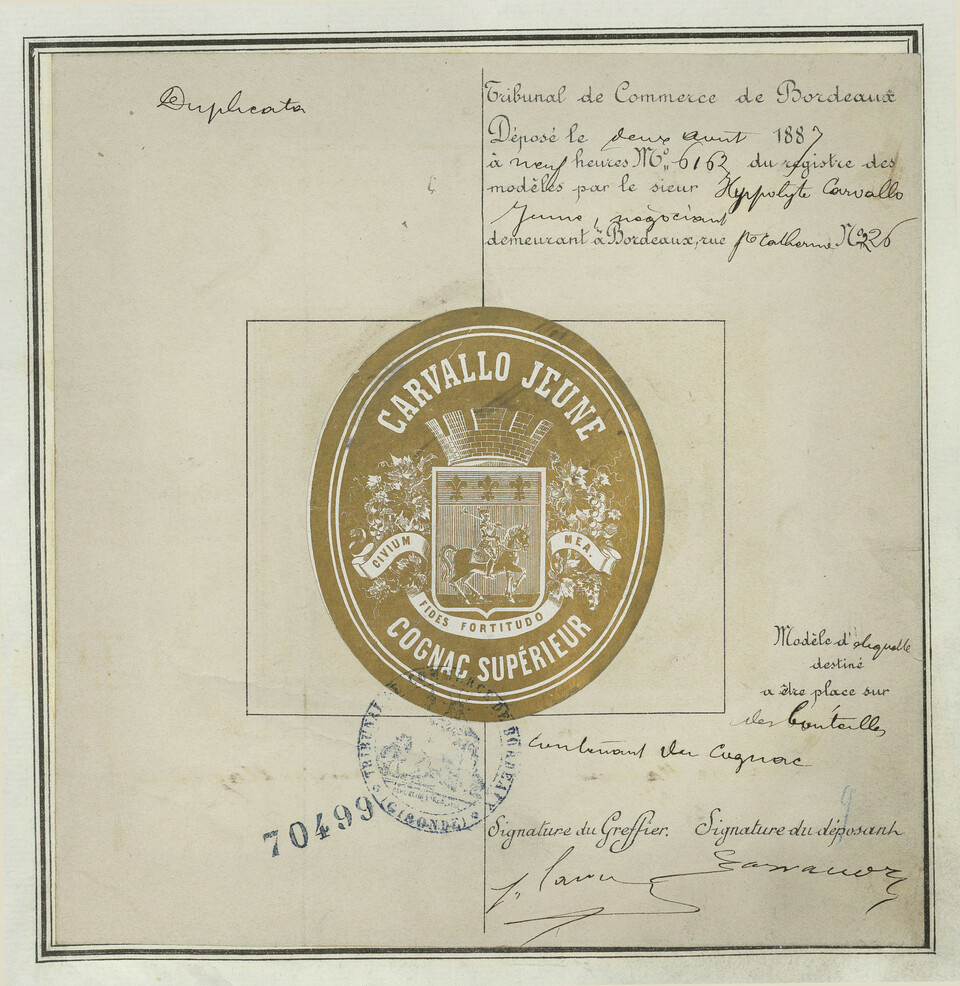 Duplicata
Tribunal de Commerce de Bordeaux
Déposé le deux avril 1887
à neuf heures N° 6162 du registre des
modèles par le sieur Hyppolyte Carvallo
Jeune, négociant
demeurant à Bordeaux, rue Ste Catherine N° 226
CARVALLO JEUNE
CIVIUM
MEA.
FIDES FORTITUDO
COGNAC SUPÉRIEUR
Modèle d'etiquette
destiné
a être place sur
des bouteilles
contenant du Cognac
TRIBUNAL DE COMMERCE DE BORDEAUX
(GIRONDE)
70499
Signature du Greffier. Signature du déposant